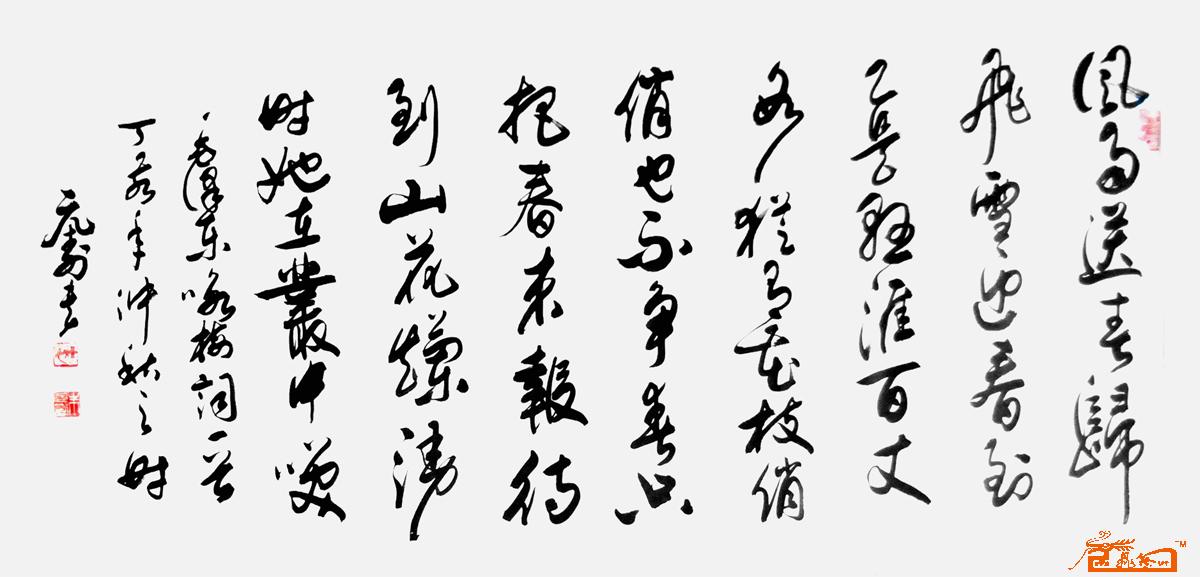 風雨送春歸
飛雪迎春到
已是懸涯百丈
冰猶有花枝俏
俏也不爭春只
把春來報待
到山花爛漫
時她在叢中笑
毛澤東咏梅詞一首
丁亥年仲秋之時